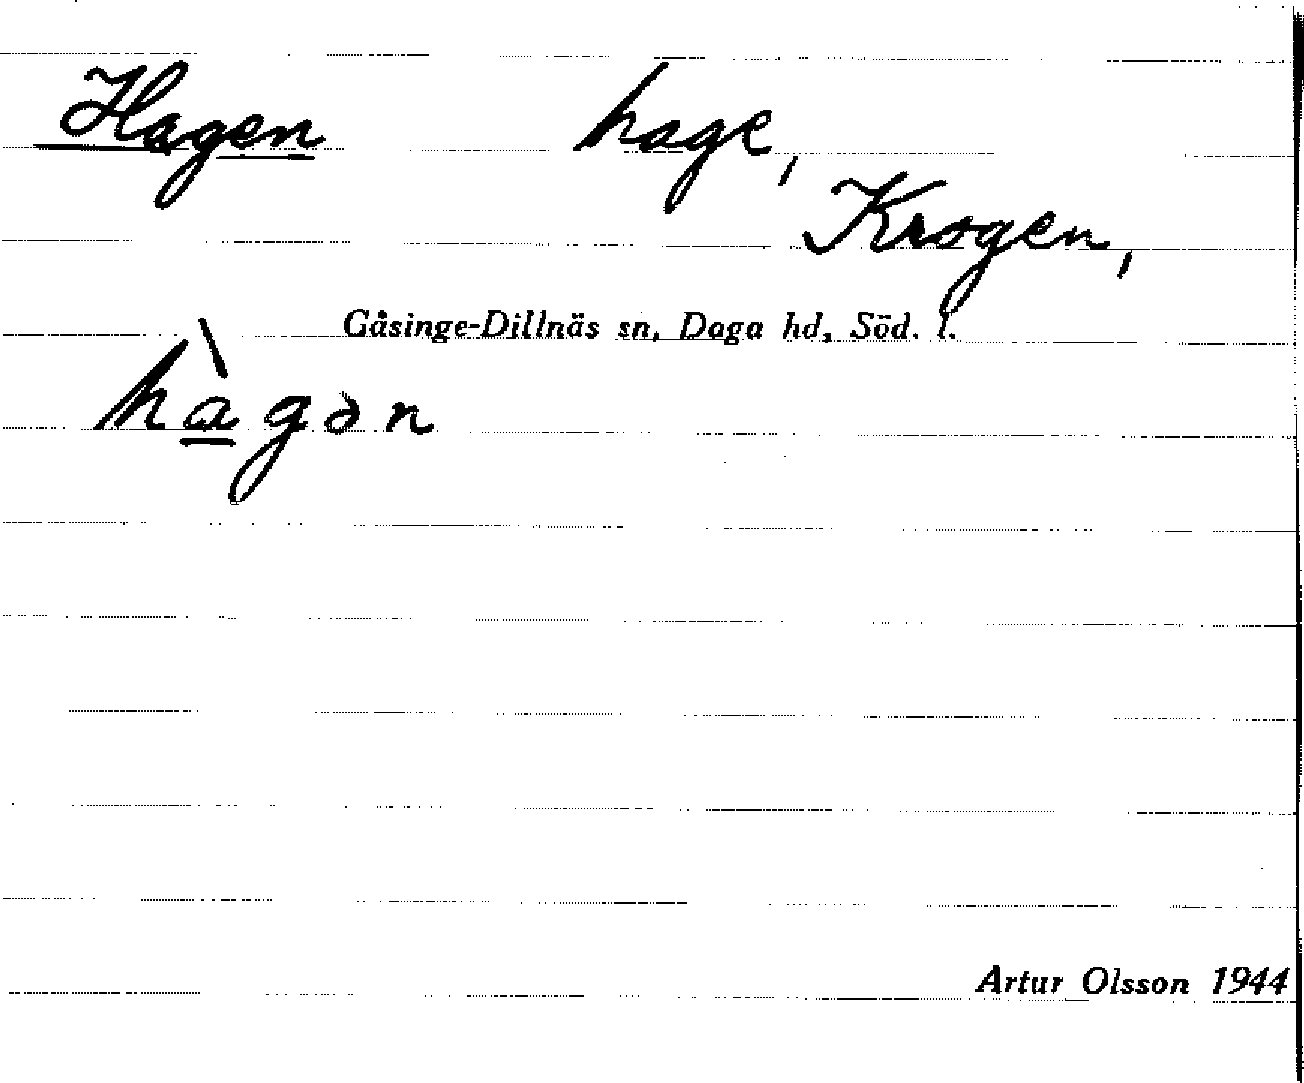 Hagen hage,
Krogen,
Gåsinge-Dillnäs sn, Daga hd, Söd. l.
hà̲gən
Artur Olsson 1944